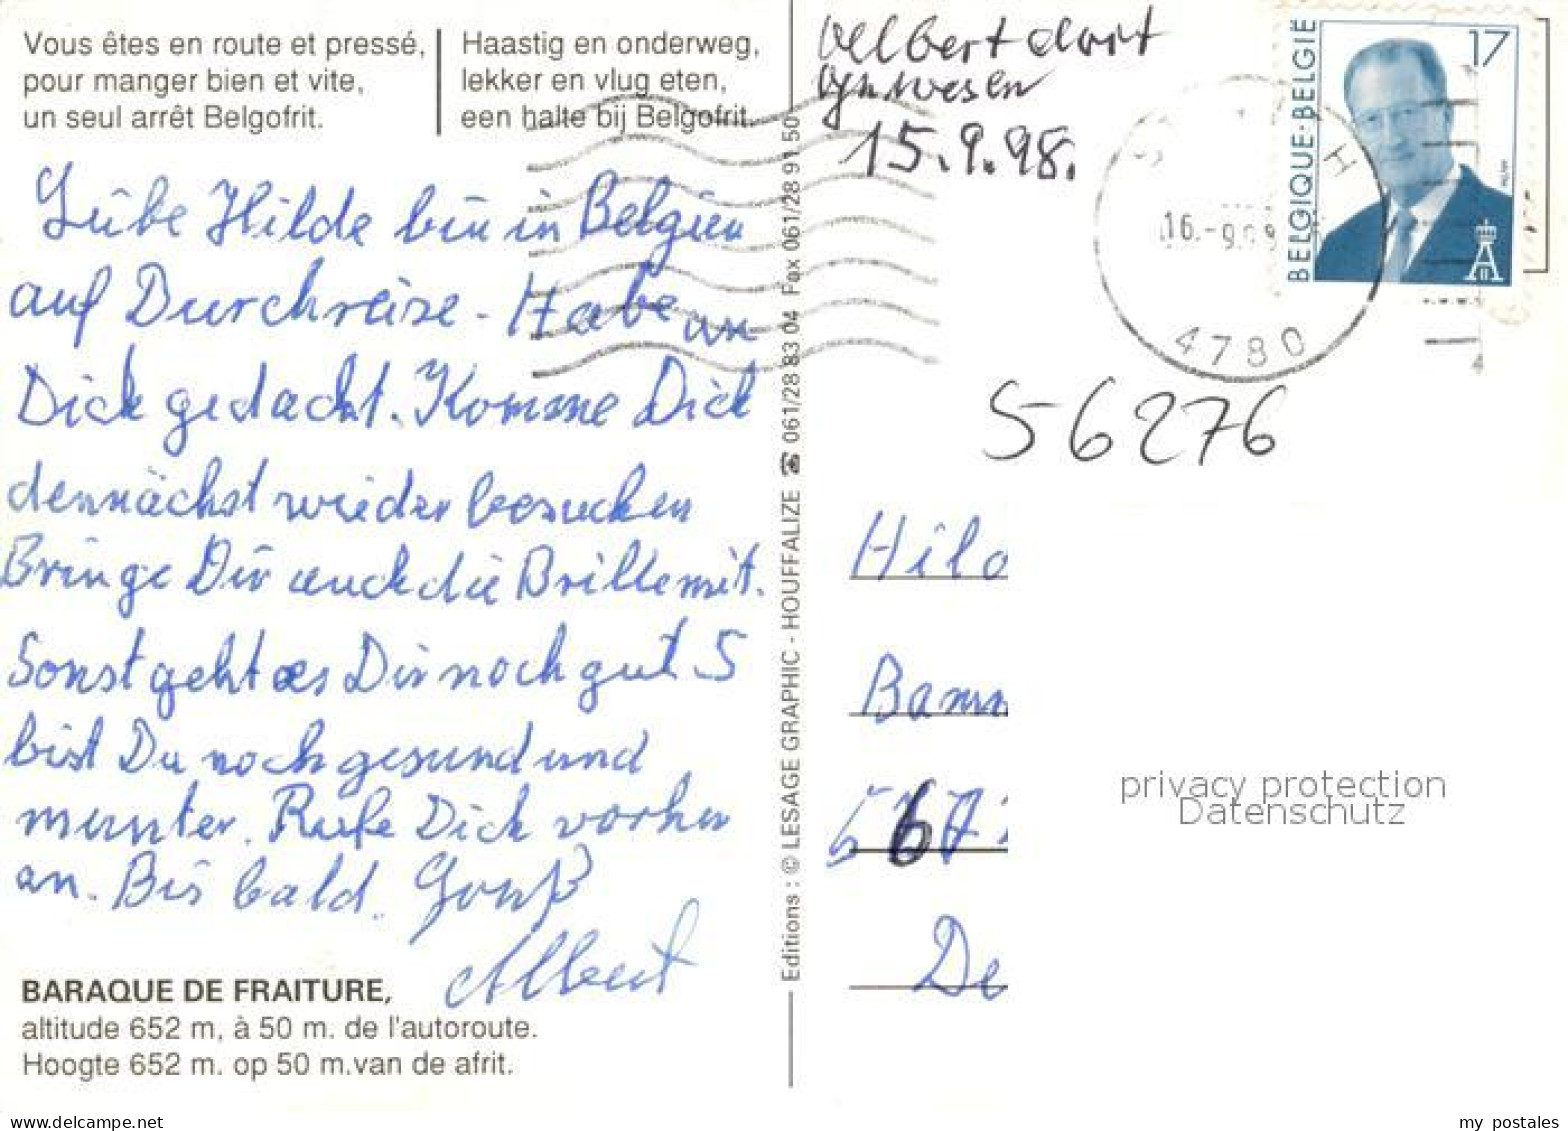 Vous êtes en route et pressé,
pour manger bien et vite,
un seul arrêt Belgofrit.
Haastig en onderweg,
lekker en vlug eten,
een halte bij Belgofrit.
Liebe Hilde bin in Belgien
auf Durchreise. Habe an
Dich gedacht. Komme Dich
demnächst wieder besuchen
Bringe Dir auch die Brille mit.
Sonst geht es Dir noch gut
bist Du noch gesund und
munter. Rufe Dich vorher
an. Bis bald. Gruß
Albert
BARAQUE DE FRAITURE,
altitude 652 m, à 50 m. de l'autoroute.
Hoogte 652 m. op 50 m.van de afrit.
Editions : © LESAGE GRAPHIC - HOUFFALIZE ☎ 061/28 83 04 Fax 061/28 91 50
Albert dort
gewesen
15.9.98.
BELGIQUE·BELGIË
17
16.-9.
4780
56276
Hild
De
privacy protection
Datenschutz
my postales